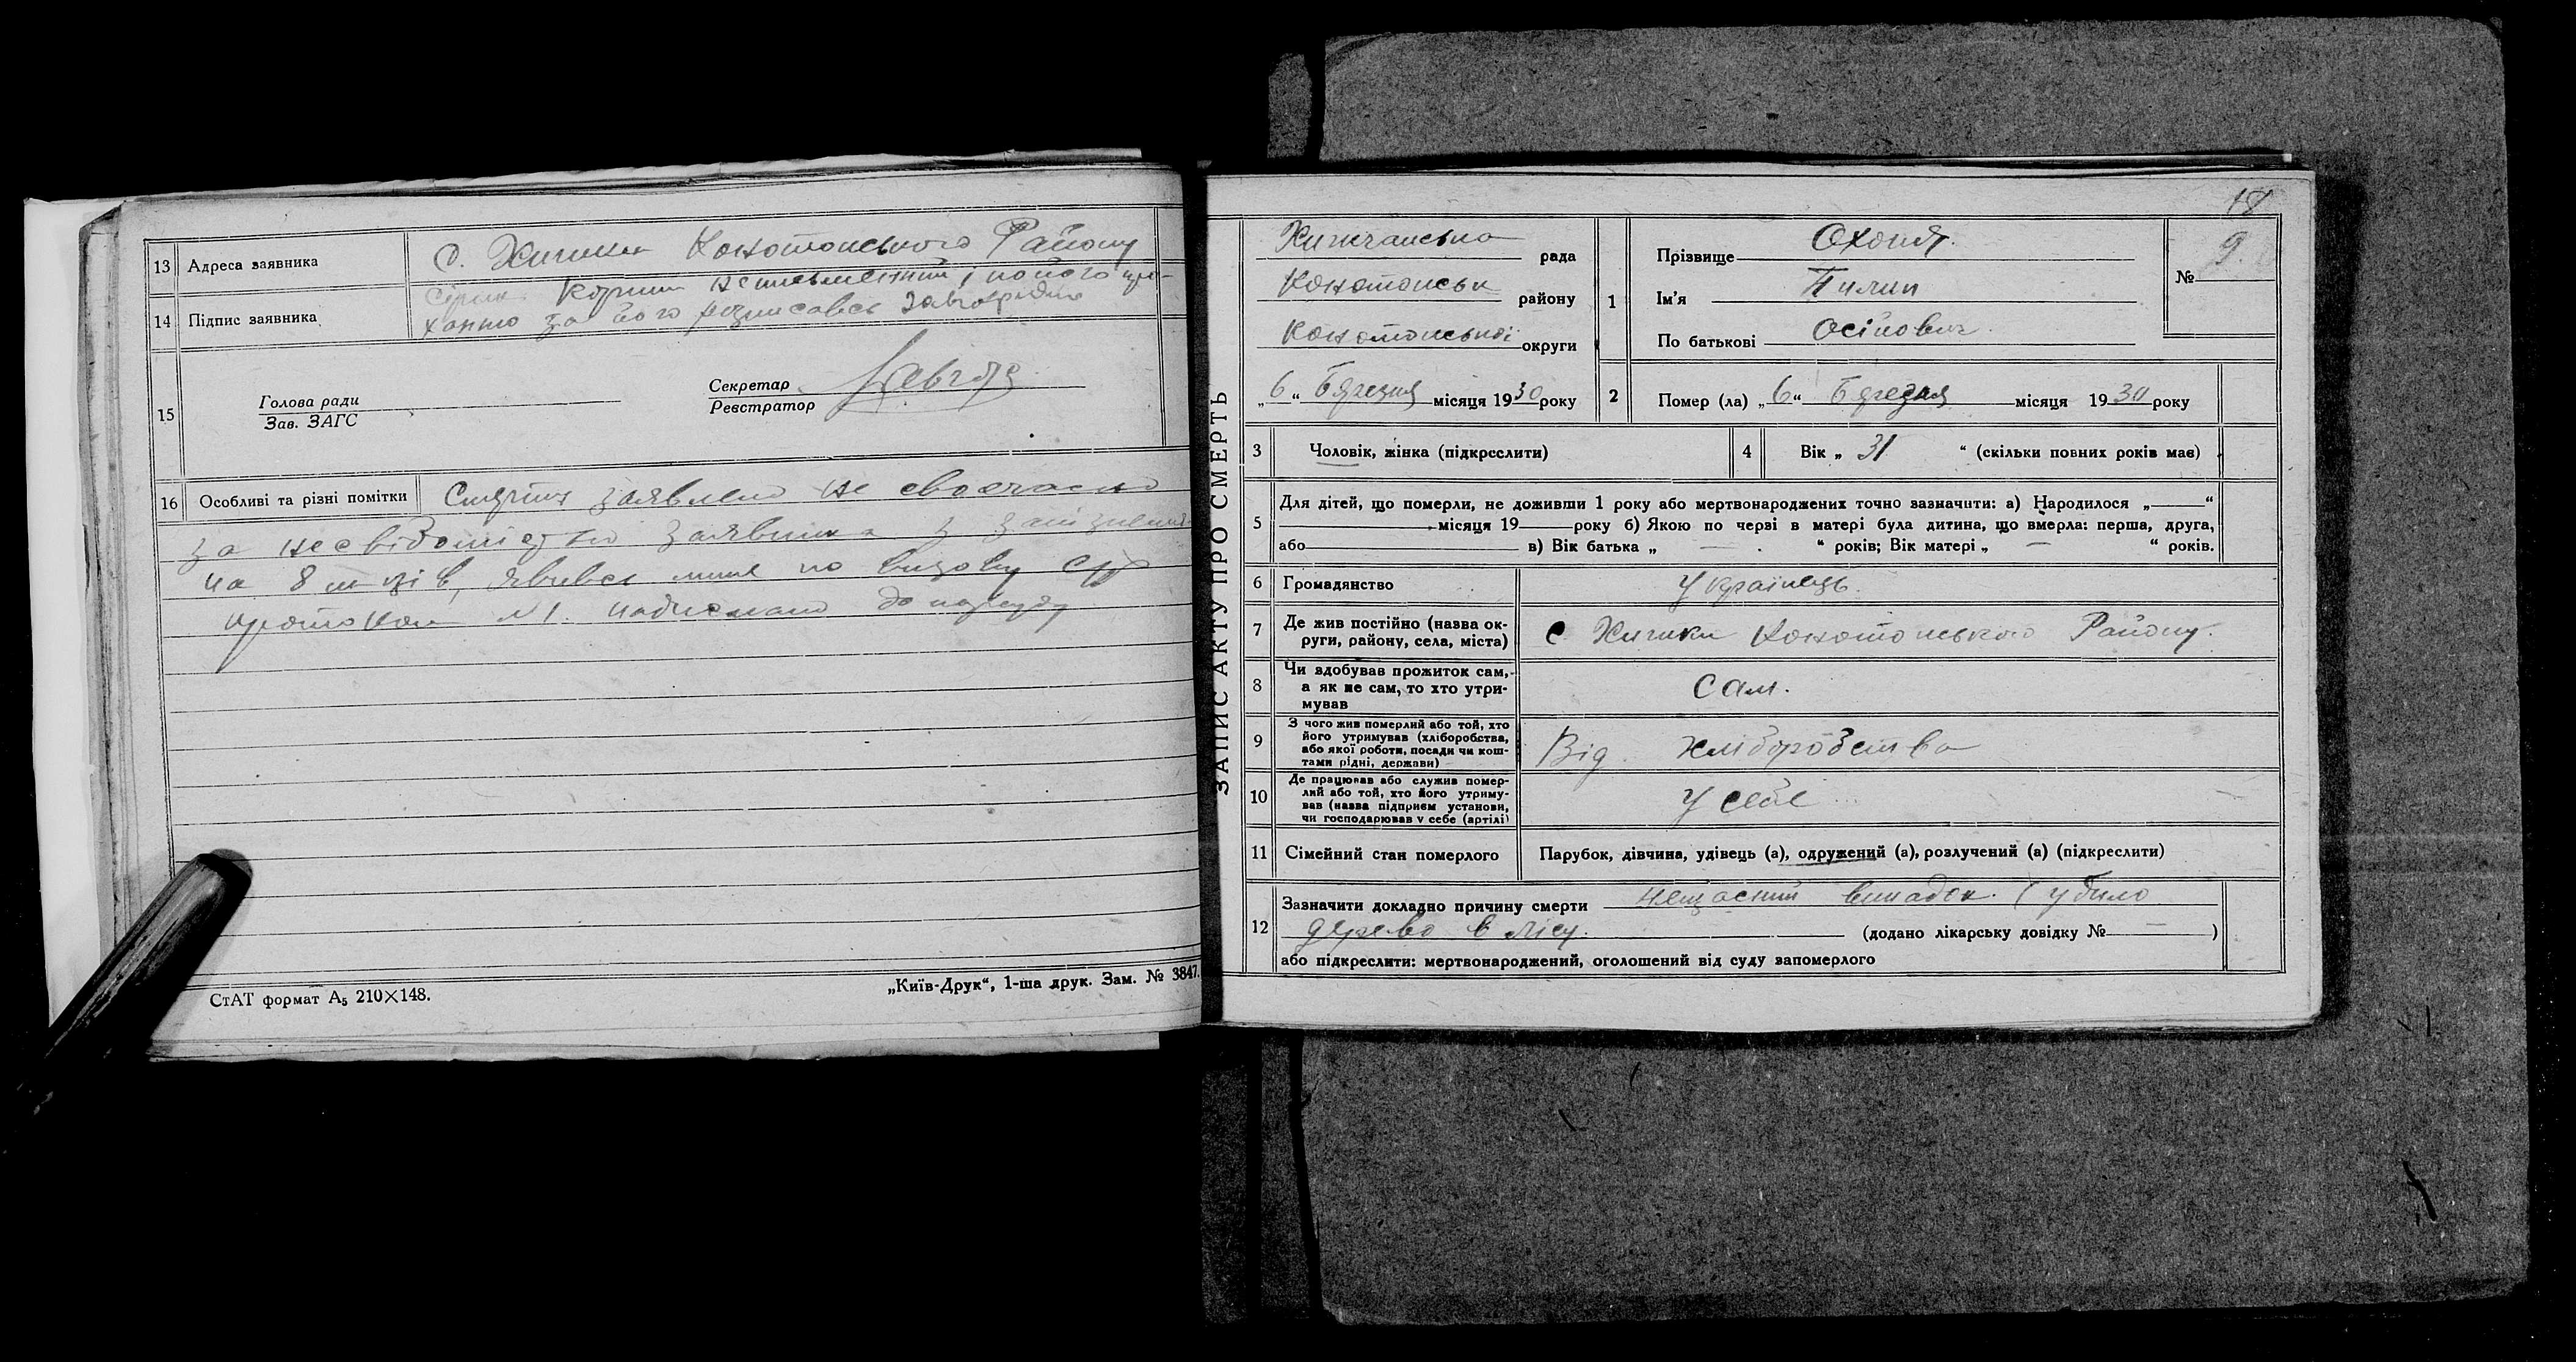 13 Адреса заявника с. Хижки Конотопського Району
14 Підпис заявника неписьменний, по його про-
ханню за його розписавсь
15 Голова ради
Зав. ЗАГС
Секретар
Реєстратор
16 Особливі та різні помітки Смерть заявлено не своєчасно
за несвідомістю заявника з
на 8 явився лише по визову с/р
протокол №1. надіслано до
СтАТ формат А5 210×148.
„Київ-Друк“, 1-ша друк. Зам. № 3847.
18
ЗАПИС АКТУ ПРО СМЕРТЬ
Хижчанська рада
Конотопськ району
Конотопської округи
„6“ Березня місяця 1930 року
1 Прізвище Охоня
Ім'я Пилип
По батькові Осіпович
№ 9.
2 Помер (ла) „6“ Березня місяця 1930 року
3 Чоловік, жінка (підкреслити)
4 Вік „31“ (скільки повних років має)
5 Для дітей, що померли, не доживши 1 року або мертвонароджених точно зазначити: а) Народилося „ “
місяця 19 року б) Якою по черзі в матері була дитина, що вмерла: перша, друга,
або в) Вік батька „ — “ років; Вік матері „ — “ років.
6 Громадянство Українець.
7 Де жив постійно (назва ок-
руги, району, села, міста) с. Хижки Конотопського Району.
8 Чи здобував прожиток сам,
а як не сам, то хто утри-
мував сам.
9 З чого жив померлий або той, хто
його утримував (хліборобства,
або якої роботи, посади чи кош-
тами рідні, держави) Від хліборобства
10 Де працював або служив помер-
лий або той, хто його утриму-
вав (назва підприєм установи,
чи господарював у себе (артілі) У себе
11 Сімейний стан померлого Парубок, дівчина, удівець (а), одружений (а), розлучений (а) (підкреслити)
12 Зазначити докладно причину смерти нещасний випадок. (убило
дерево в лісу. (додано лікарську довідку № — )
або підкреслити: мертвонароджений, оголошений від суду запомерлого